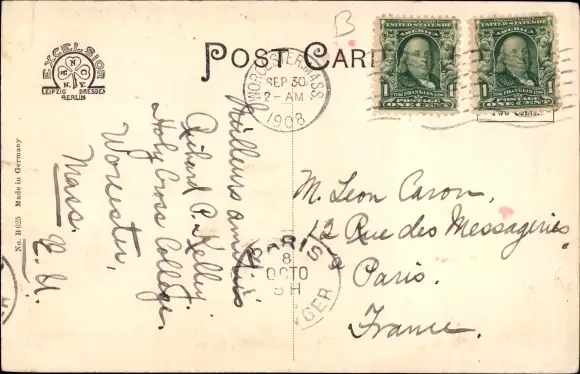 POST CARD
B
EXCELSIOR
N.Y.
LEIPZIG DRESDEN
BERLIN
No. B 625 Made in Germany
WORCESTER, MASS.
SEP 30
2-AM
1908
UNITED STATES OF
AMERICA
1 FRANKLIN 1
POSTAGE
ONE CENT
UNITED STATES OF
AMERICA
1 FRANKLIN 1
POSTAGE
ONE CENT
Two Cents
Meilleurs amitiés
Richard P. Kelley.
Holy Cross College.
Worcester,
Mass.
E. U.
M. Leon Caron,
12 Rue des Messageries
Paris.
France.
PARIS
8
OCTO